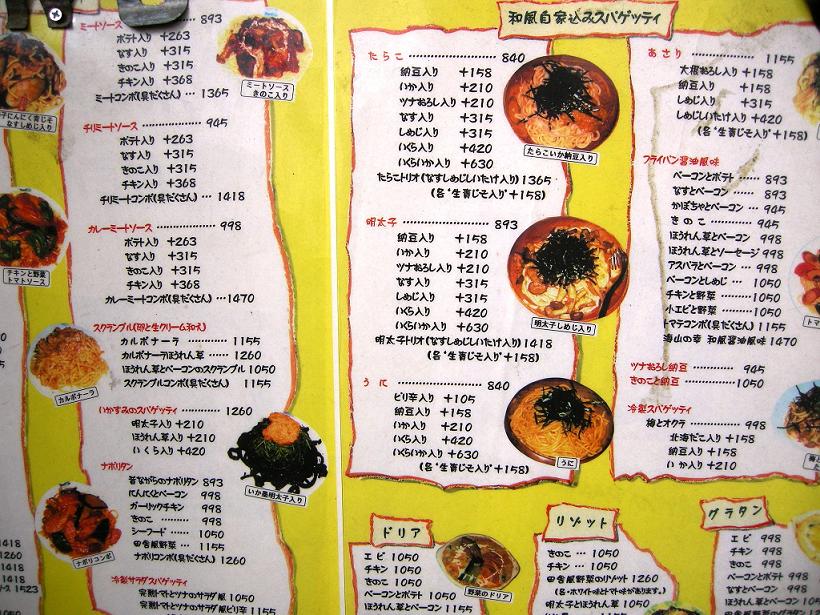 ミートソース ………… 893
ポテト入り +263
なす入り +315
きのこ入り +315
チキン入り +368
ミートコンボ(具だくさん) … 1365
ミートソース
きのこ入り
チリミートソース ………… 945
ポテト入り +263
なす入り +315
きのこ入り +315
チキン入り +368
チリミートコンボ(具だくさん) … 1418
カレーミートソース ………… 998
ポテト入り +263
なす入り +315
きのこ入り +315
チキン入り +368
カレーミートコンボ(具だくさん) …1470
チキンと野菜
トマトソース
スクランブル(卵と生クリーム和え)
カルボナーラ ………… 1155
カルボナーラほうれん草 …… 1260
ほうれん草とベーコンのスクランブル 1050
スクランブルコンボ(具だくさん) 1155
カルボナーラ
いかすみのスパゲッティ ………… 1260
明太子入り +210
ほうれん草入り +210
いくら入り +420
いか墨明太子入り
ナポリタン
昔ながらのナポリタン 893
にんにくとベーコン 998
ガーリックチキン 998
きのこ …… 998
シーフード …… 1050
田舎風野菜 … 1155
ナポリコンボ(具だくさん) 1260
ナポリコンボ
冷製サラダスパゲッティ
完熟トマトとツナのサラダ風
完熟トマトとツナのサラダ風ピリ辛 1155
和風自家込みスパゲッティ
たらこ ………… 840
納豆入り +158
いか入り +210
ツナおろし入り +210
なす入り +315
しめじ入り +315
いくら入り +420
いくらいか入り +630
たらこトリオ(なすしめじしいたけ入り) 1365
(各"生青じそ入り"+158)
たらこいか納豆入り
明太子 ………… 893
納豆入り +158
いか入り +210
ツナおろし入り +210
なす入り +315
しめじ入り +315
いくら入り +420
いくらいか入り +630
明太子トリオ(なすしめじしいたけ入り) 1418
(各"生青じそ入り"+158)
明太子しめじ入り
うに ………… 840
ピリ辛入り +105
納豆入り +158
いか入り +210
いくら入り +420
いくらいか入り +630
(各"生青じそ入り"+158)
うに
あさり ………… 1155
大根おろし入り +158
しめじ入り +315
しめじしいたけ入り +420
(各"生青じそ入り"+158)
フライパン醤油風味
ベーコンとポテト …… 893
なすとベーコン …… 893
かぼちゃとベーコン … 945
きのこ ………… 945
ほうれん草とベーコン 998
ほうれん草とソーセージ 998
アスパラとベーコン … 998
ベーコンとしめじ … 1050
チキンと野菜 …… 1050
小エビと野菜 …… 1050
トマテコンボ(具だくさん) 1155
海山の幸 和風醤油風味 1470
ツナおろし納豆 …… 945
きのこと納豆 ……… 1050
冷製スパゲッティ
梅とオクラ ……… 998
北海だこ入り +158
納豆入り +158
いか入り +210
ドリア
エビ 1050
チキン 1050
きのこ 1050
ベーコンとポテト 1050
ほうれん草とベーコン 1155
野菜のドリア
リゾット
きのこ … 1050
チキン … 1050
田舎風野菜のリゾット 1260
(各・ホワイト味とトマト味があります。)
明太子とほうれん草 1050
グラタン
エビ 998
チキン 998
きのこ 998
ベーコンとポテト 998
なすとベーコン 998
ほうれん草とベーコン 1050